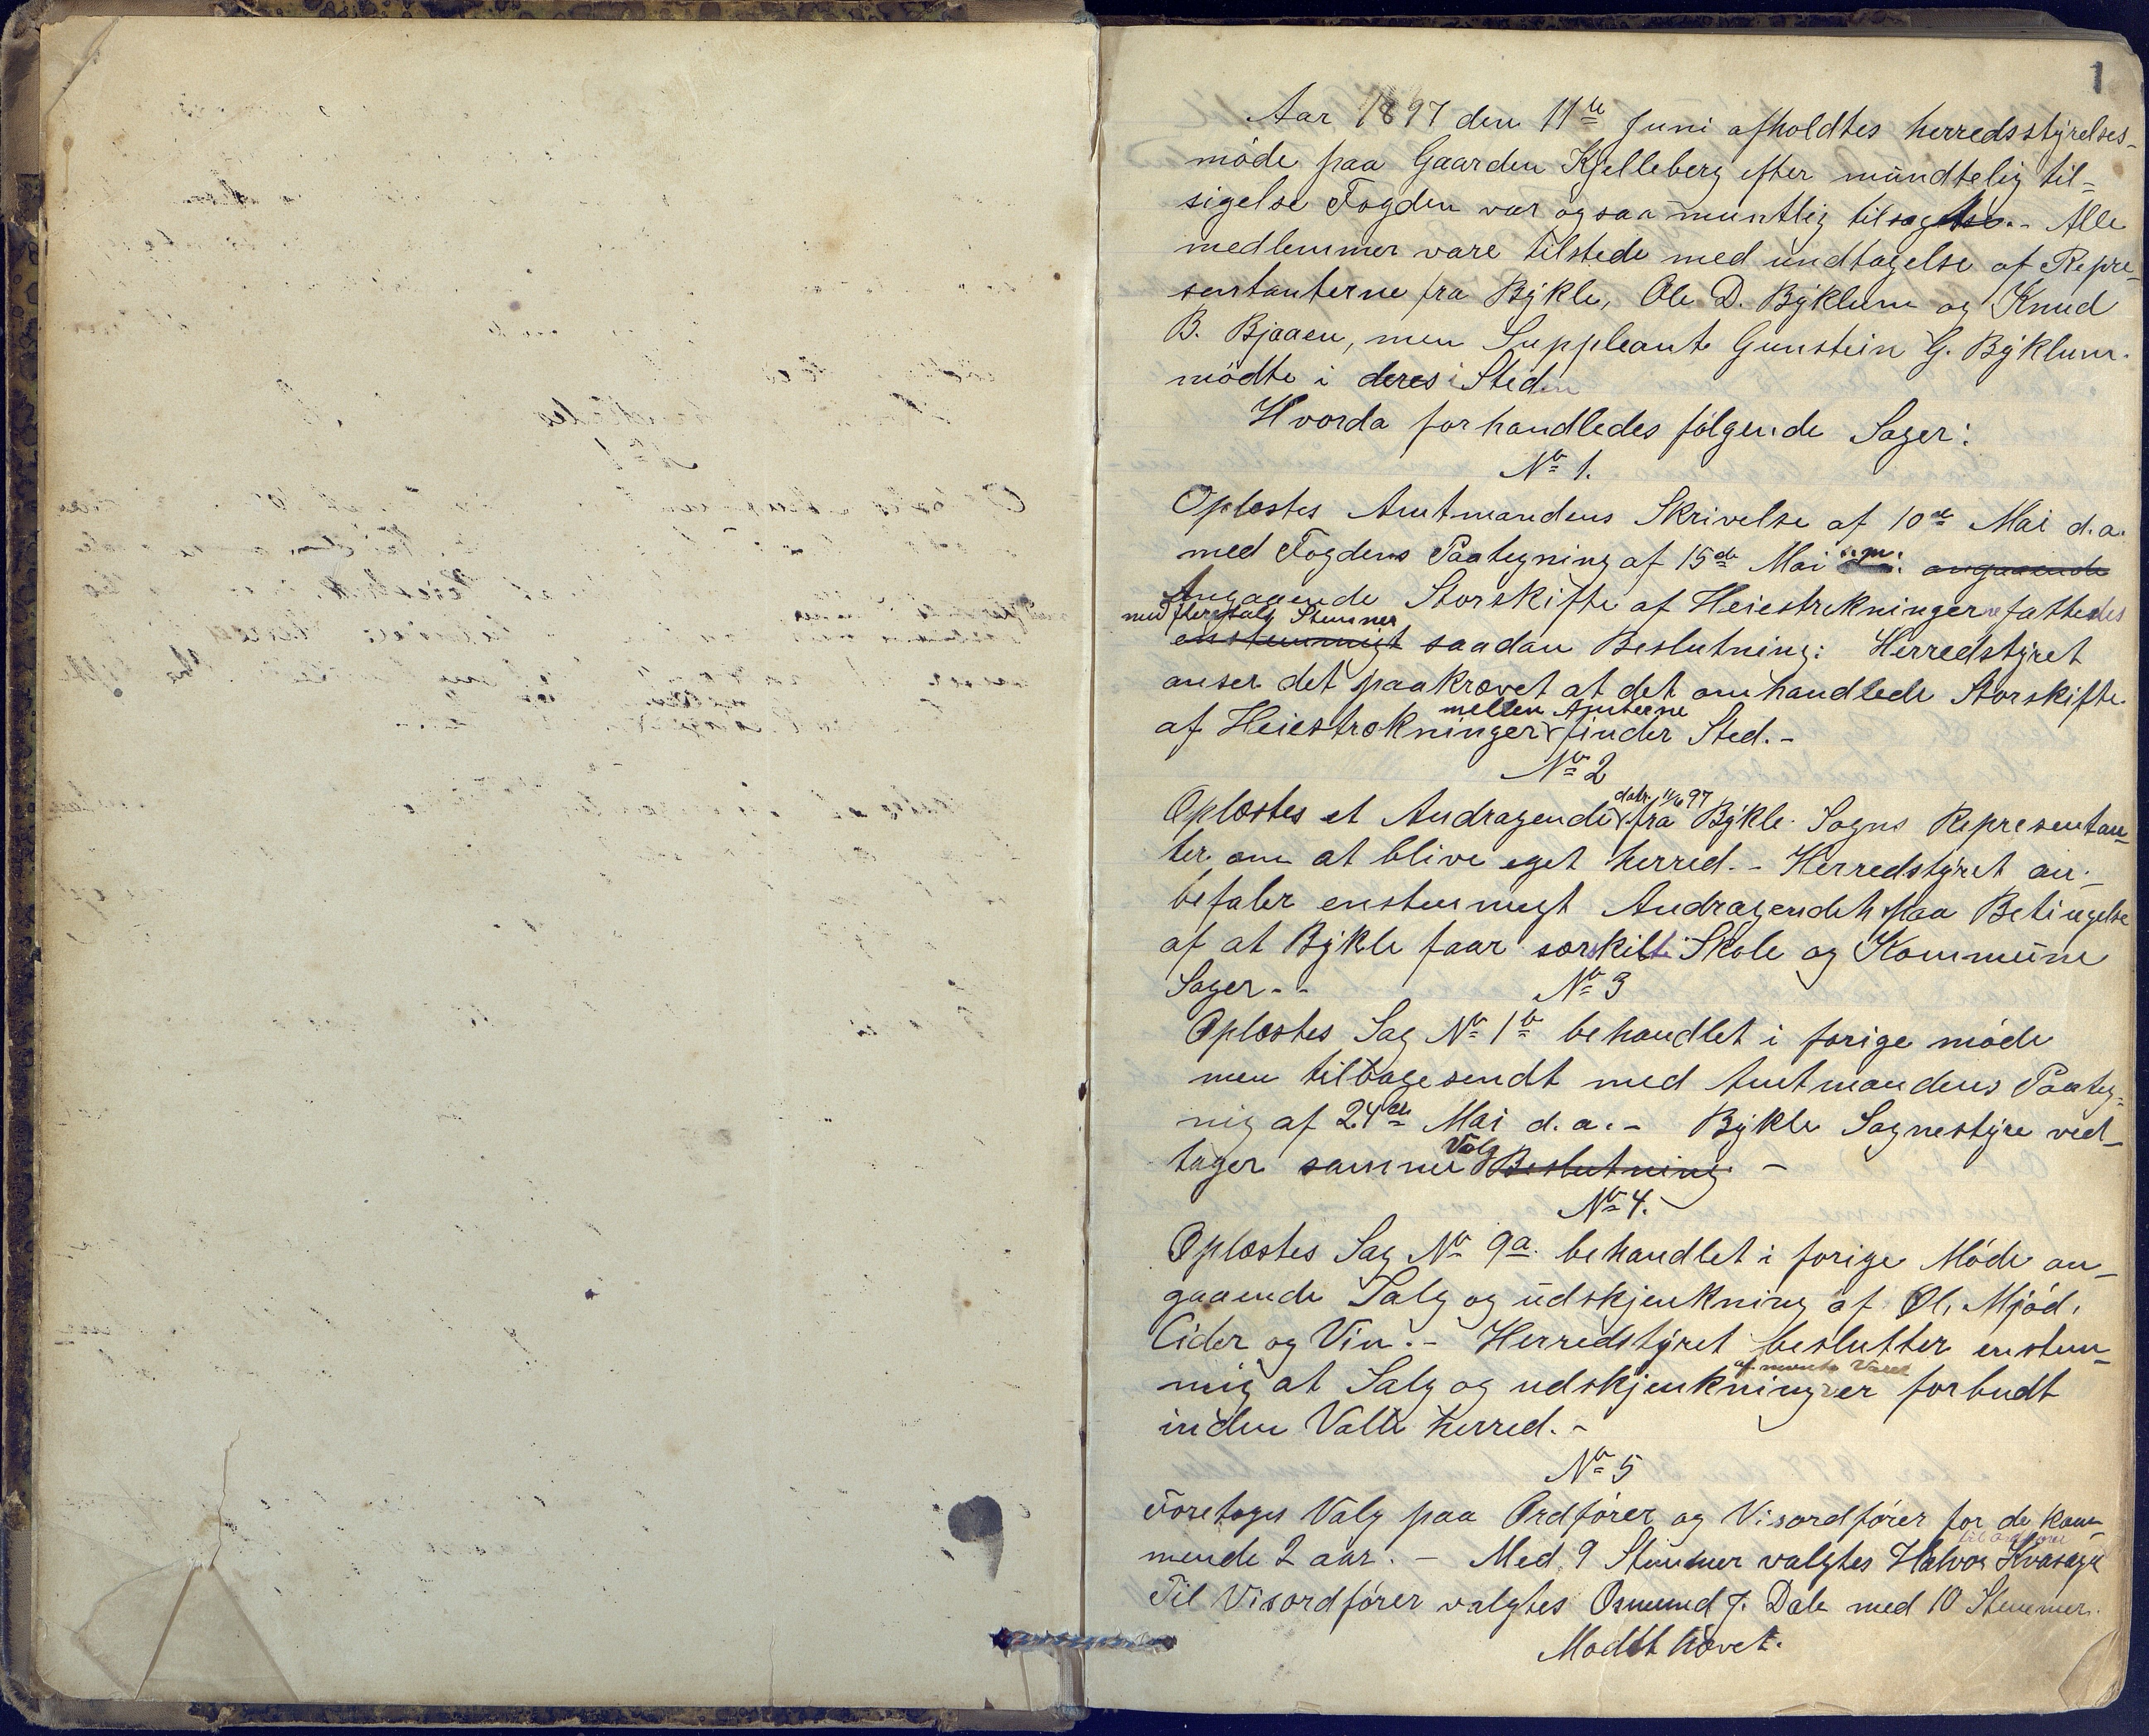 1
Aar 1897 den 11te Juni afholdtes herredsstyrelses-
möde paa Gaarden Kjelleberg efter mündtelig til-
sigelse Fogden var ogsaa muntlig tilsagt. - Alle
medlemmer vare tilstede med ündtagelse af Repre-
sentanterne fra Bykle, Ole D. Byklum og Knud
B. Bjaaen, men Suppleant Gunstein G. Byklum.
mödte i deres Sted
Hvorda forhandledes fölgende Sager:
No 1.
Oplæstes Amtmandens Skrivelse af 10de Mai d.a.
med Fogdens Paategning af 15de Mai s.m. angaaende
Angaaende Storskifte af Heiestrekningerne fattedes
med flertalg Stemmer
enstemmigt saadan Beslutning: Herredstyret
anser det paakrævet at det omhandlede Storskifte
mellem Amterne
af Heiestrækninger finder Sted. -
No 2
datr. 11/6 97
Oplæstes et Andragende fra Bykle Sogns Representan-
ter om at blive eget herred. - Herredstyret an-
befaler enstemmigt Andragendet paa Betingelse
af at Bykle faar særskilte Skole og Kommüne
Sager - -
No 3
Oplæstes Sag No 1b behandlet i forige möde
men tilbagesendt med Amtmandens Paateg-
nig af 24de Mai d.a. - Bykle Sognestyre ved-
Valg
tager samme Beslutning -
No 4.
Oplæstes Sag No 9a. behandlet i forige Möde an-
gaaende Salg og üdskjenkning af Øl, Mjød,
Cider og Vin. - Herredstyret beslutter enstem-
af nævnte Varer
mig at Salg og udskjenkning er forbudt
inden Valle herred. -
No 5
Foretoges Valg paa Ordfører og Visordfører for de kom-
til ordfører
mende 2 aar. - Med 9 Stemmer valgtes Halvor
Til Visordfører valgtes Osmund J. Dale med 10 Stemmer.
Mödet hævet.